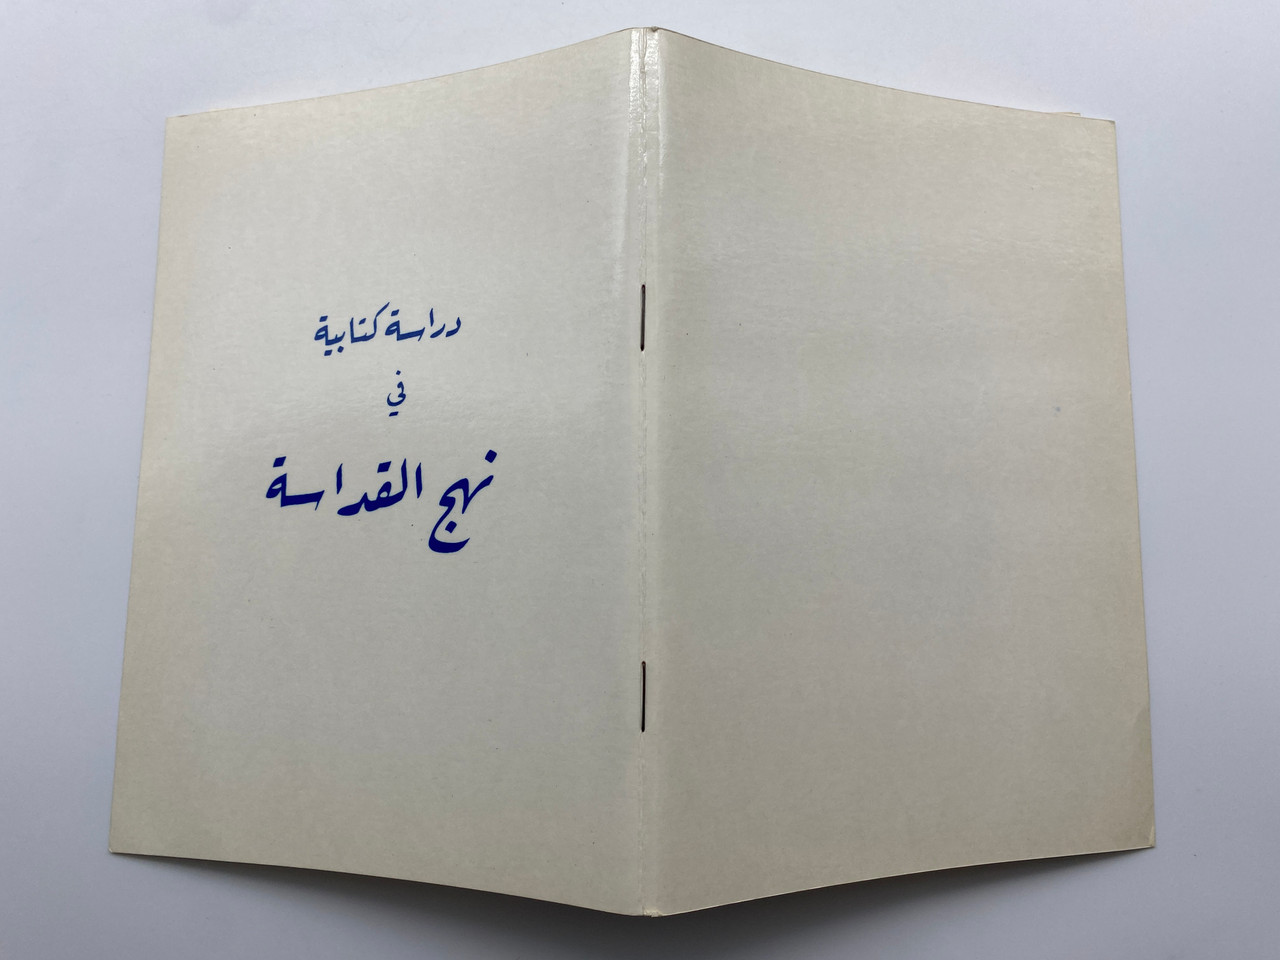 دراسة كتابية
في
نهج القداسة